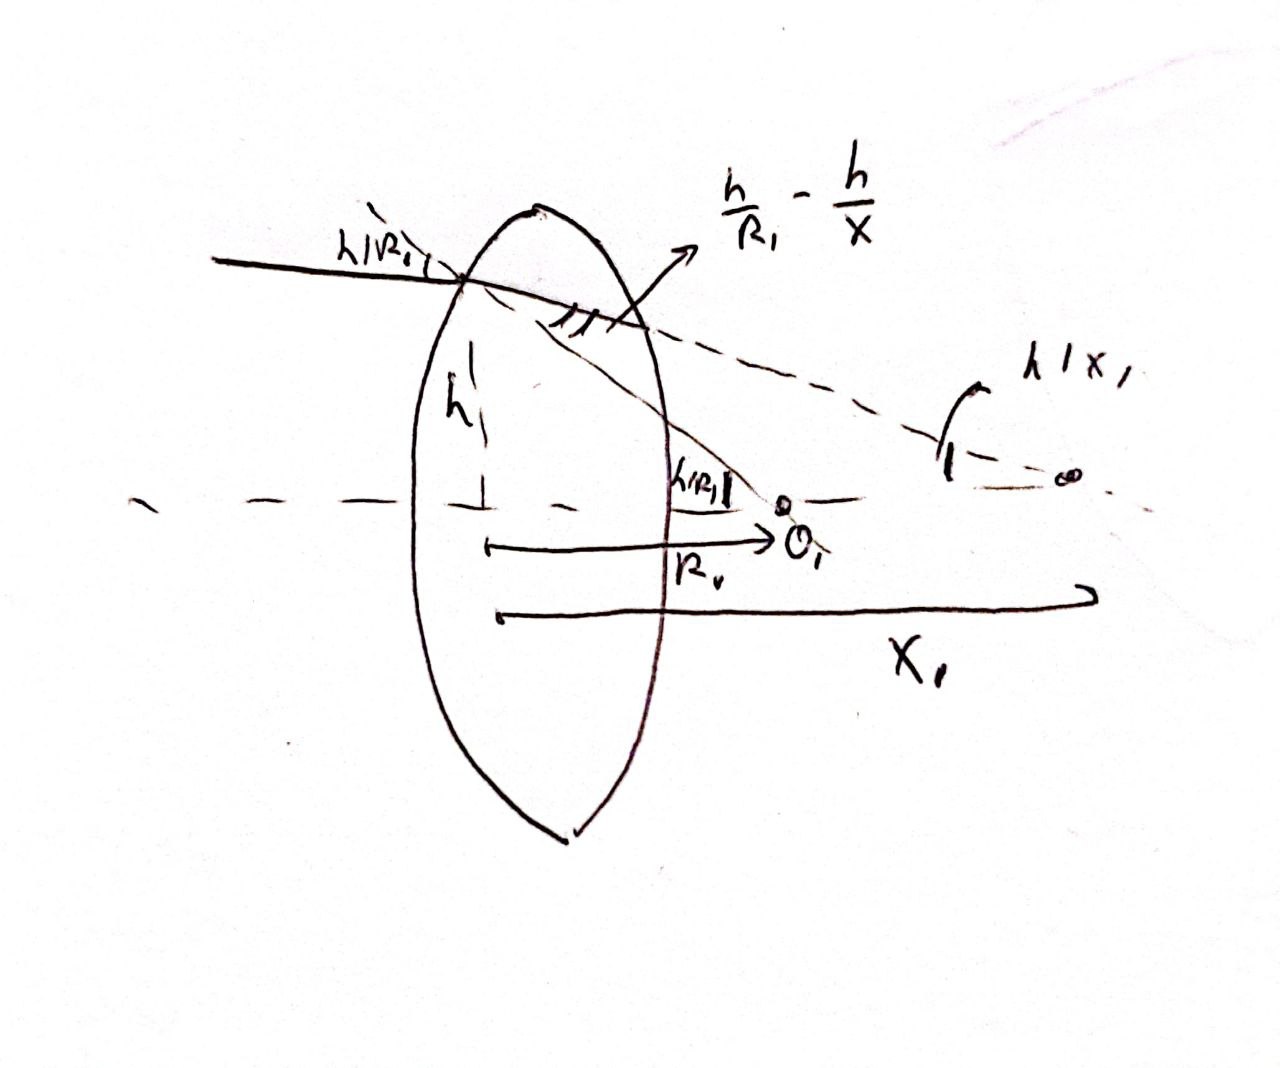 h/R₁ - h/x
h/R₁
h/x₁
h
h/R₁
O₁
R₁
x₁